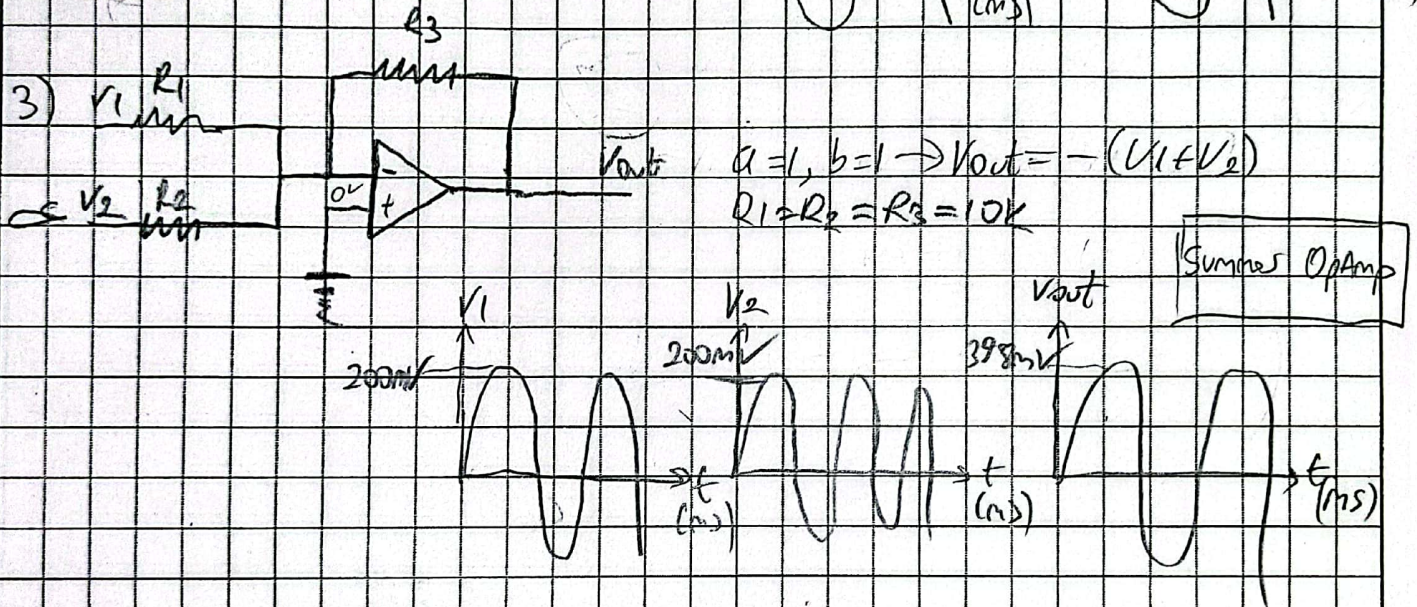 (ms)
R3
3) V1 R1
V2 R2
0V
-
+
Vout
a=1, b=1 → Vout = - (V1+V2)
R1=R2=R3=10K
Summer OpAmp
V1
200mV
t
(ms)
V2
200mV
t
(ms)
Vout
398mV
t
(ms)